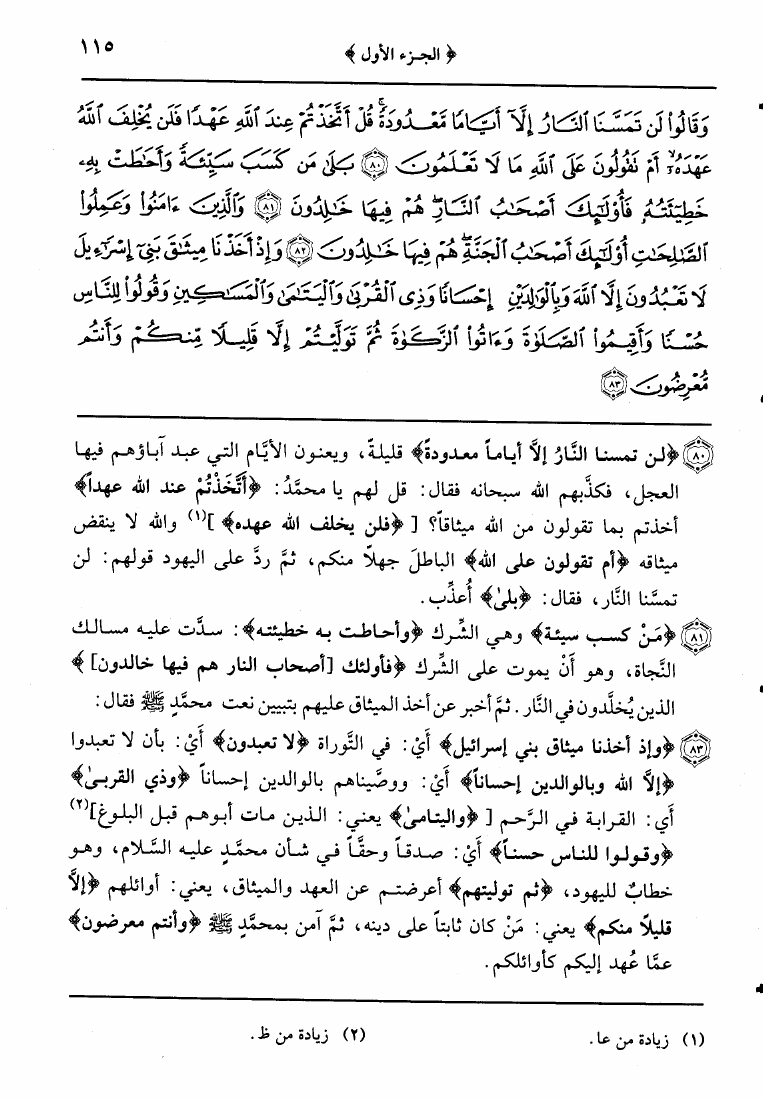 ﴿ الجزء الأول ﴾ ١١٥
وَقَالُوا۟ لَن تَمَسَّنَا ٱلنَّارُ إِلَّآ أَيَّامًا مَّعْدُودَةً ۚ قُلْ أَتَّخَذْتُمْ عِندَ ٱللَّهِ عَهْدًا فَلَن يُخْلِفَ ٱللَّهُ
عَهْدَهُۥٓ ۖ أَمْ تَقُولُونَ عَلَى ٱللَّهِ مَا لَا تَعْلَمُونَ ۝٨٠ بَلَىٰ مَن كَسَبَ سَيِّئَةً وَأَحَٰطَتْ بِهِۦ
خَطِيٓـَٔتُهُۥ فَأُو۟لَٰٓئِكَ أَصْحَٰبُ ٱلنَّارِ ۖ هُمْ فِيهَا خَٰلِدُونَ ۝٨١ وَٱلَّذِينَ ءَامَنُوا۟ وَعَمِلُوا۟
ٱلصَّٰلِحَٰتِ أُو۟لَٰٓئِكَ أَصْحَٰبُ ٱلْجَنَّةِ ۖ هُمْ فِيهَا خَٰلِدُونَ ۝٨٢ وَإِذْ أَخَذْنَا مِيثَٰقَ بَنِىٓ إِسْرَٰٓءِيلَ
لَا تَعْبُدُونَ إِلَّا ٱللَّهَ وَبِٱلْوَٰلِدَيْنِ إِحْسَانًا وَذِى ٱلْقُرْبَىٰ وَٱلْيَتَٰمَىٰ وَٱلْمَسَٰكِينِ وَقُولُوا۟ لِلنَّاسِ
حُسْنًا وَأَقِيمُوا۟ ٱلصَّلَوٰةَ وَءَاتُوا۟ ٱلزَّكَوٰةَ ثُمَّ تَوَلَّيْتُمْ إِلَّا قَلِيلًا مِّنكُمْ وَأَنتُم
مُّعْرِضُونَ ۝٨٣
۝٨٠ ﴿لن تمسنا النَّارُ إلاَّ أياماً معدودةً﴾ قليلةً، ويعنون الأيَّام التي عبد آباؤهم فيها
العجل، فكذَّبهم الله سبحانه فقال: قل لهم يا محمَّدُ: ﴿أَتَّخَذْتُمْ عند الله عهداً﴾
أخذتم بما تقولون من الله ميثاقاً؟ [ ﴿فلن يخلف الله عهده﴾ ](١) والله لا ينقض
ميثاقه ﴿أم تقولون على الله﴾ الباطلَ جهلاً منكم، ثمَّ ردَّ على اليهود قولهم: لن
تمسَّنا النَّار، فقال: ﴿بلىٰ﴾ أُعذِّب.
۝٨١ ﴿مَنْ كسب سيئة﴾ وهي الشِّرك ﴿وأحاطت به خطيئته﴾: سدَّت عليه مسالك
النَّجاة، وهو أنْ يموت على الشِّرك ﴿فأولئك [أصحاب النار هم فيها خالدون] ﴾
الذين يُخلَّدون في النَّار. ثمَّ أخبر عن أخذ الميثاق عليهم بتبيين نعت محمَّدٍ ﷺ فقال:
۝٨٣ ﴿وإذ أخذنا ميثاق بني إسرائيل﴾ أيْ: في التَّوراة ﴿لا تعبدون﴾ أيْ: بأن لا تعبدوا
﴿إلاَّ الله وبالوالدين إحساناً﴾ أيْ: ووصَّيناهم بالوالدين إحساناً ﴿وذي القربىٰ﴾
أي: القرابة في الرَّحم [ ﴿واليتامىٰ﴾ يعني: الذين مات أبوهم قبل البلوغ](٢)
﴿وقولوا للناس حسناً﴾ أيْ: صدقاً وحقَّاً في شأن محمَّدٍ عليه السَّلام، وهو
خطابٌ لليهود، ﴿ثم توليتهم﴾ أعرضتم عن العهد والميثاق، يعني: أوائلهم ﴿إلاَّ
قليلاً منكم﴾ يعني: مَنْ كان ثابتاً على دينه، ثمَّ آمن بمحمَّدٍ ﷺ ﴿وأنتم معرضون﴾
عمَّا عُهد إليكم كأوائلكم.
(١) زيادة من عا. (٢) زيادة من ظ.